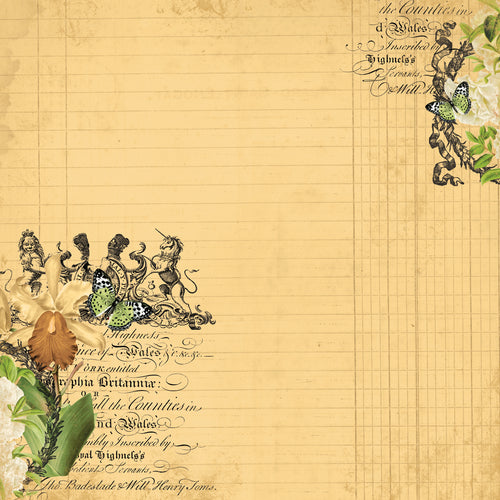 the Counties in
d Wales
Inscribed by
Highness's
Servants,
& Will. H
Highness
nce of Wales & c. & c. &c.
ORK entitled
raphia Britanniæ:
OR
all the Counties in
nd Wales
mbly Inscribed by
yal Highness's
edient Servants,
Tho. Badeslade & Will. Henry Toms.